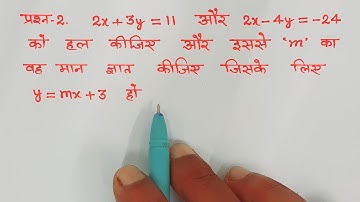 प्रश्न-2. 2x+3y=11 और 2x-4y=-24
को हल कीजिए और इससे 'm' का
वह मान ज्ञात कीजिए जिसके लिए
y=mx+3 हों